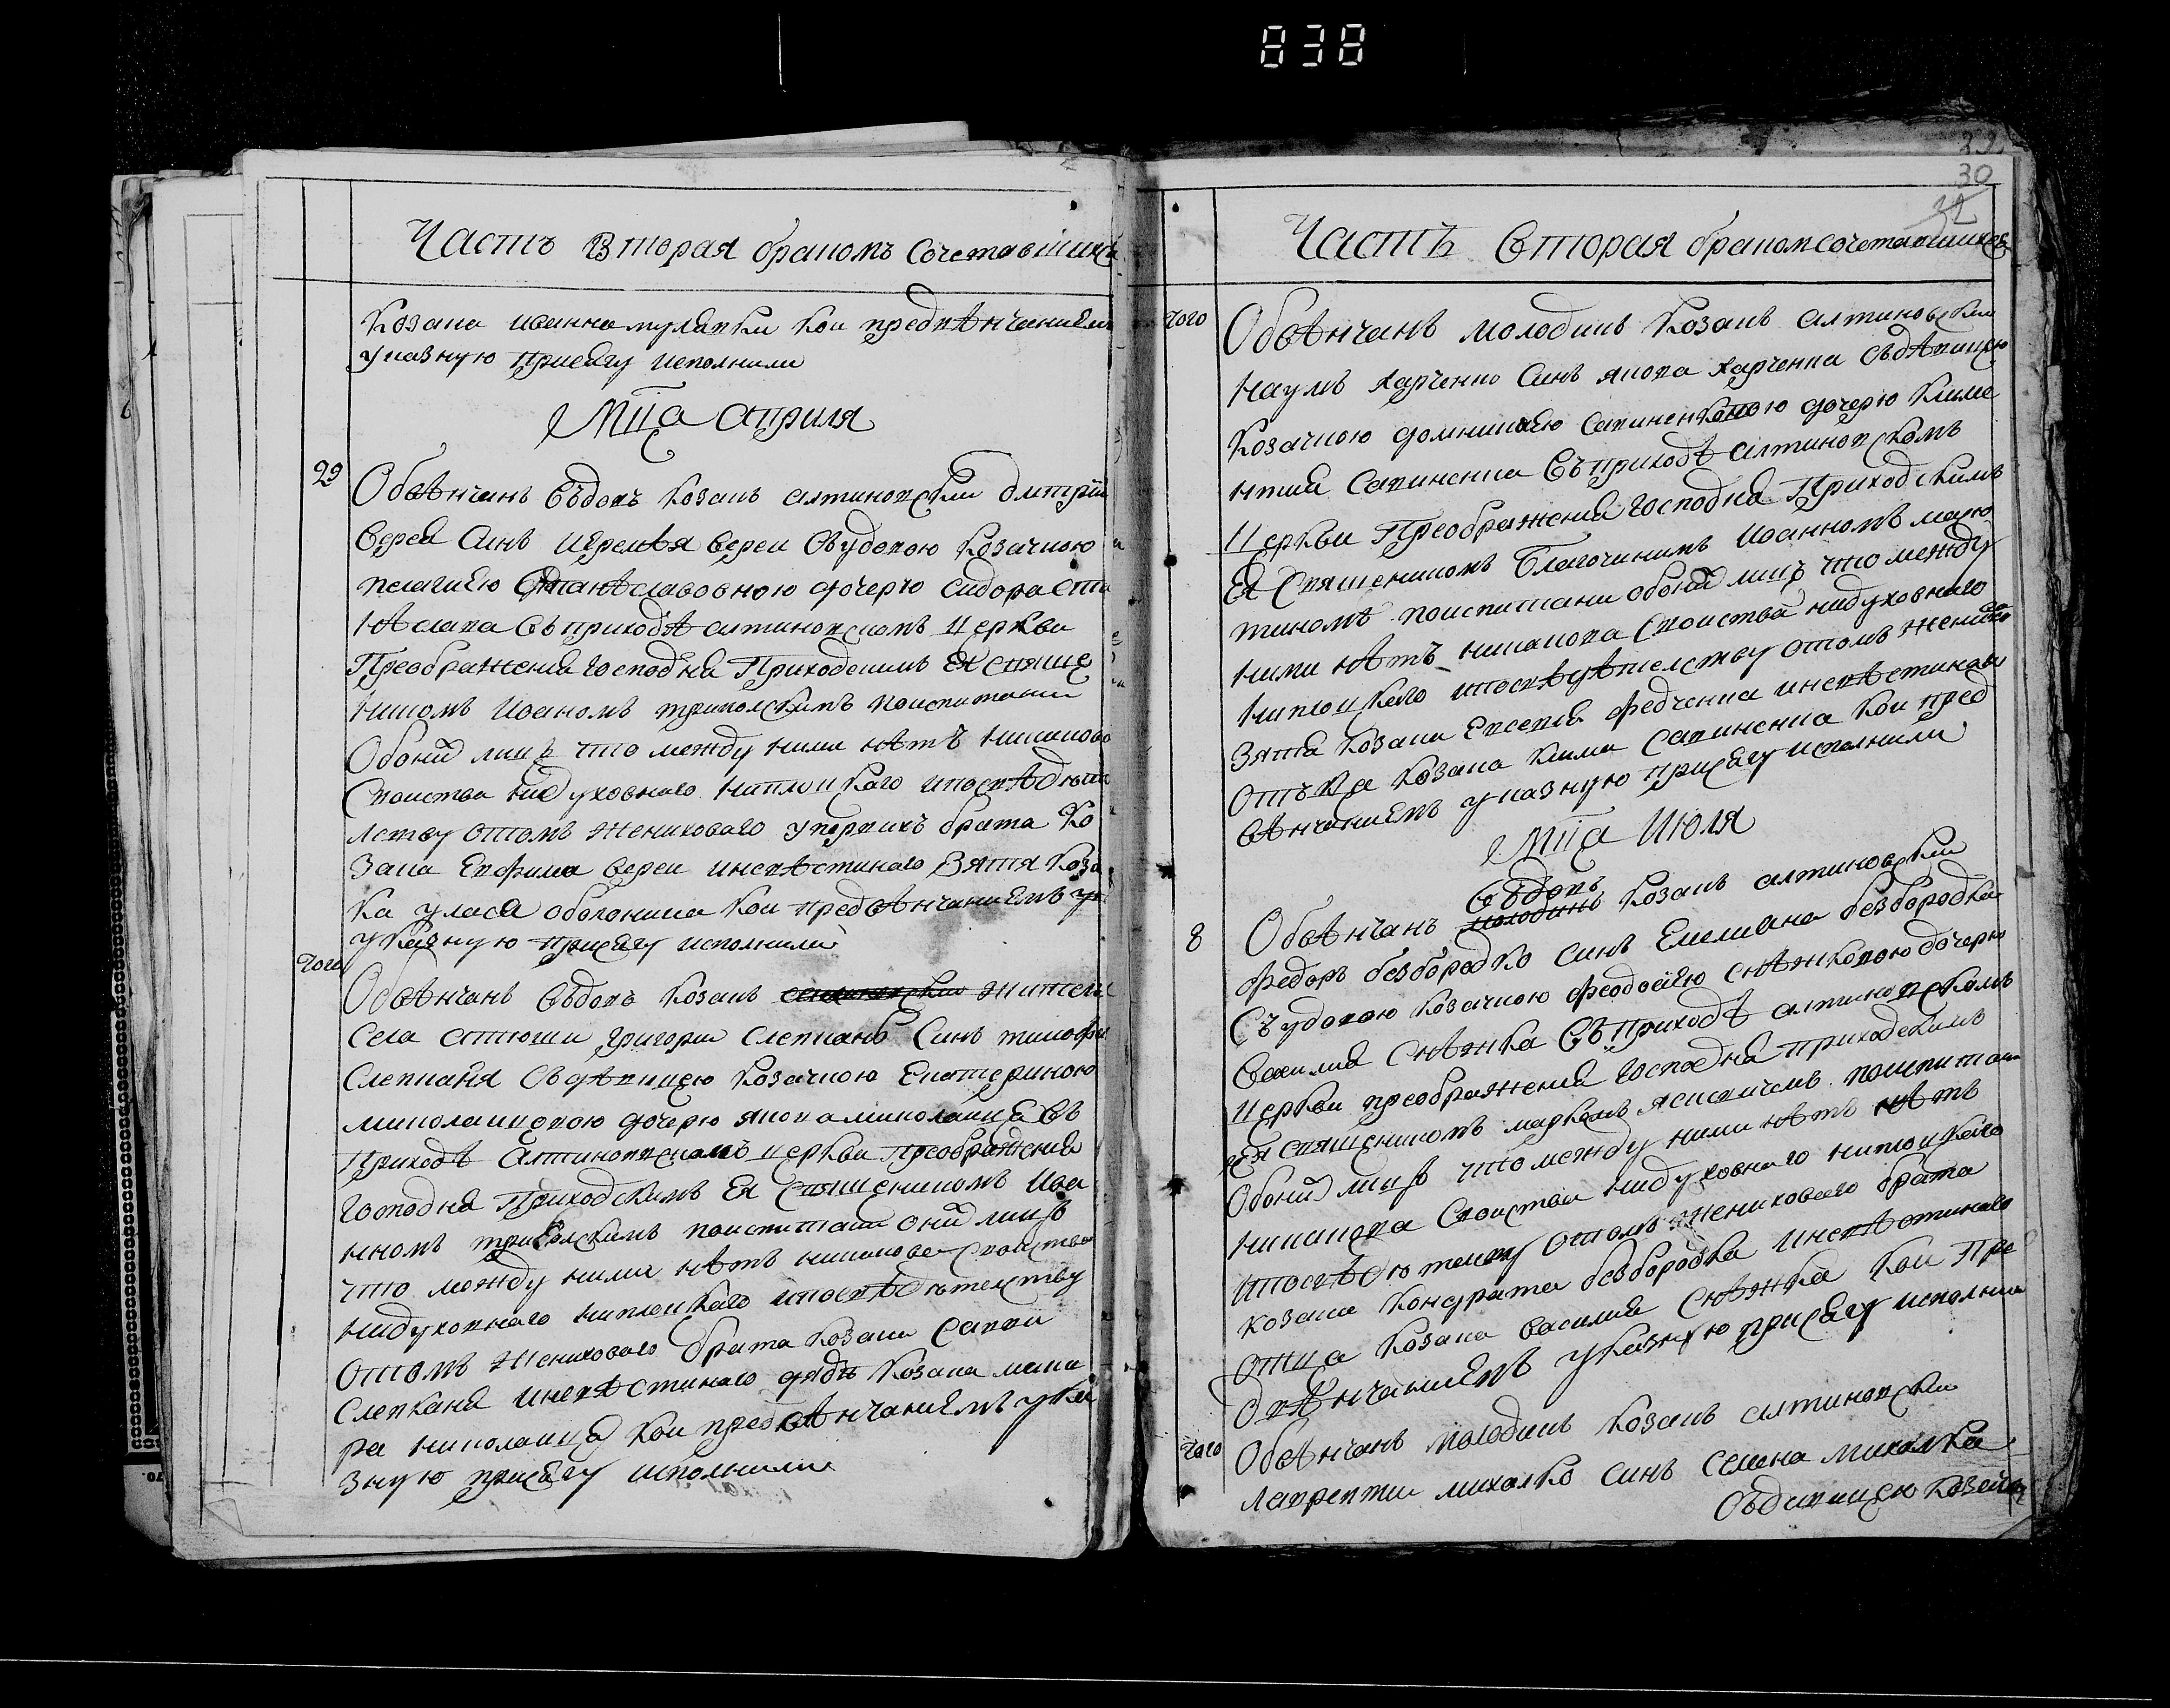 838
Часть Вторая бракомъ Сочетавшихся
Козака иоанна кои предвѣнчаниемъ
указную присягу исполнили
Мца Априля
29 Обвѣнчанъ Вѣдовъ Козакъ алтиновскии дмтрии
Верея Синъ Иеремѣя Вереи Овудовою Козачкою
пелагиею Станѣславовною дочерю Сидора Ста
нѣслава Въ приходѣ алтиновскомъ церкви
Преображения Господня Приходскимъ Ея Свяще
никомъ Иоаномъ трипольскимъ поиспитании
Обоий лицъ что между ними нѣтъ никаково
Своиства нидуховнаго ниплоцкаго ипосвѣдите
лству отомъ Жениховаго брата Ко
зака Ефима Вереи иневѣстинаго Зятя Коза
ка уласа кои предвѣнчаниемъ ук
указную присягу исполнили
того Обвѣнчанъ Вѣдовъ Козакъ Жителъ
Села Атюши григории Слепканъ Синъ тимофея
Слепканя Овдѣвицею Козачкою Екатериною
миколаицовою дочерю якова миколаица Въ
Приходѣ Алтиновскомъ церкви Преображения
Господня Приходскимъ Ея Священикомъ Иоа
нномъ трипольскимъ поиспитании оний лицъ
что между ними нѣтъ никакова Своиства
нидуховнаго ниплоцкаго ипосвѣдителству
отомъ Жениховаго брата Козака Саввы
Слепканя иневѣстинаго дядѣ Козака мака
ра николаица Кои предвѣнчаниемъ ука
зную присягу исполнили
29
30
32
Часть Вторая бракомъ сочетавшихся
того Обвѣнчанъ молодикъ Козакъ алтиновскии
Наумъ Харченко Синъ якова Харченка Овдѣвицею
Козачкою домникиею Савиненковою дочерю Климе
нтия Савиненка Въ приходѣ алтиновскомъ
Церкви Преображения Господня Приходскимъ
Ея Священикомъ Благочинимъ Иоанномъ мар
тиномъ поиспитании обоий лицъ что между
ними нѣтъ никакова Своиства нидуховнаго
ниплоцкаго ипосвѣдѣтелству отомъ Жениховаго
Зятя Козака Евсевия Федченка иневѣстинаго
отца Козака Клима Савиненка Кои пред
вѣнчаниемъ указную присягу исполнили
Мца Июля
Вѣдовъ
8 Обвѣнчанъ молодикъ Козакъ алтиновскии
Федоръ безбородко Синъ Емелиана безбородка
Съ удовою Козачкою феодосиею Снѣжковою дочерю
Василия Снѣжка Въ Приходѣ алтиновскомъ
Церкви преображения Господня приходскимъ
Ея священикомъ поиспитании
Обоий лицъ что между ними нѣтъ нѣтъ
никакова Своиства нидуховнаго ниплоцкаго
ипосвѣдителству отомъ Жениховаго брата
Козака Кондрата безбородка иневѣстинаго
отца Козака Василия Снѣжка Кои Пре
двѣнчаниемъ указную присягу исполнили
того Обвѣнчанъ молодикъ Козакъ алтиновскии
Лаврентии михалко Синъ Семена михалка
Овдивицею Козачк